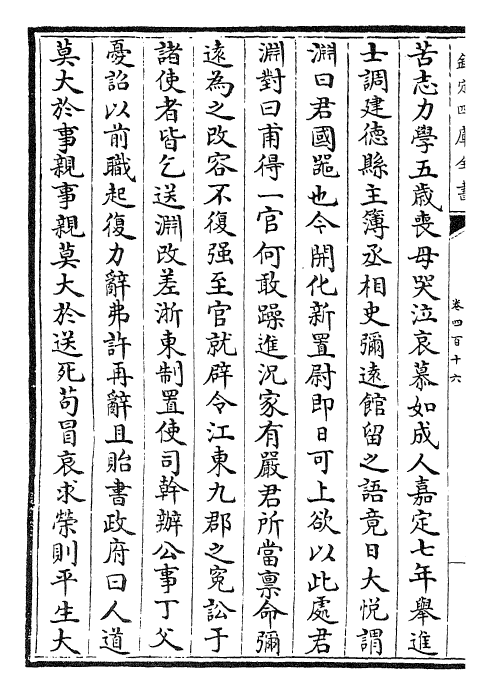 欽定四庫全書
卷四百十六
苦志力學五歲喪母哭泣哀慕如成人嘉定七年舉進
士調建德縣主簿丞相史彌遠館留之語竟日大悅謂
淵曰君國器也今開化新置尉即日可上欲以此處君
淵對曰甫得一官何敢躁進況家有嚴君所當禀命彌
遠為之改容不復强至官就辟令江東九郡之寃訟于
諸使者皆乞送淵改差浙東制置使司幹辦公事丁父
憂詔以前職起復力辭弗許再辭且貽書政府曰人道
莫大於事親事親莫大於送死苟冒哀求榮則平生大